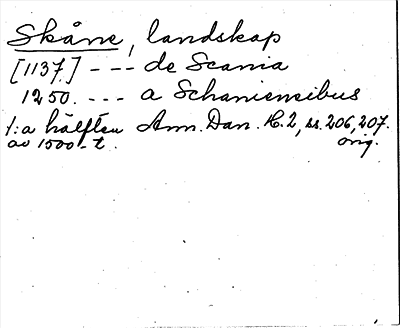 Skåne, landskap
[1137.] --- de Scania
1250. --- a Schaniensibus
1:a hälften Ann. Dan. H. 2, ss. 206, 207.
av 1500-t. orig.